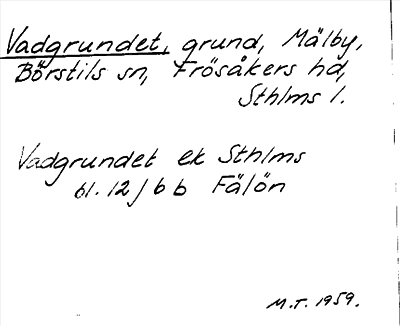 Vadgrundet, grund, Mälby,
Börstils sn, Frösåkers hd,
Sthlms l.
Vadgrundet ek Sthlms
bl. 12 j b b Fälön
M.T. 1959.